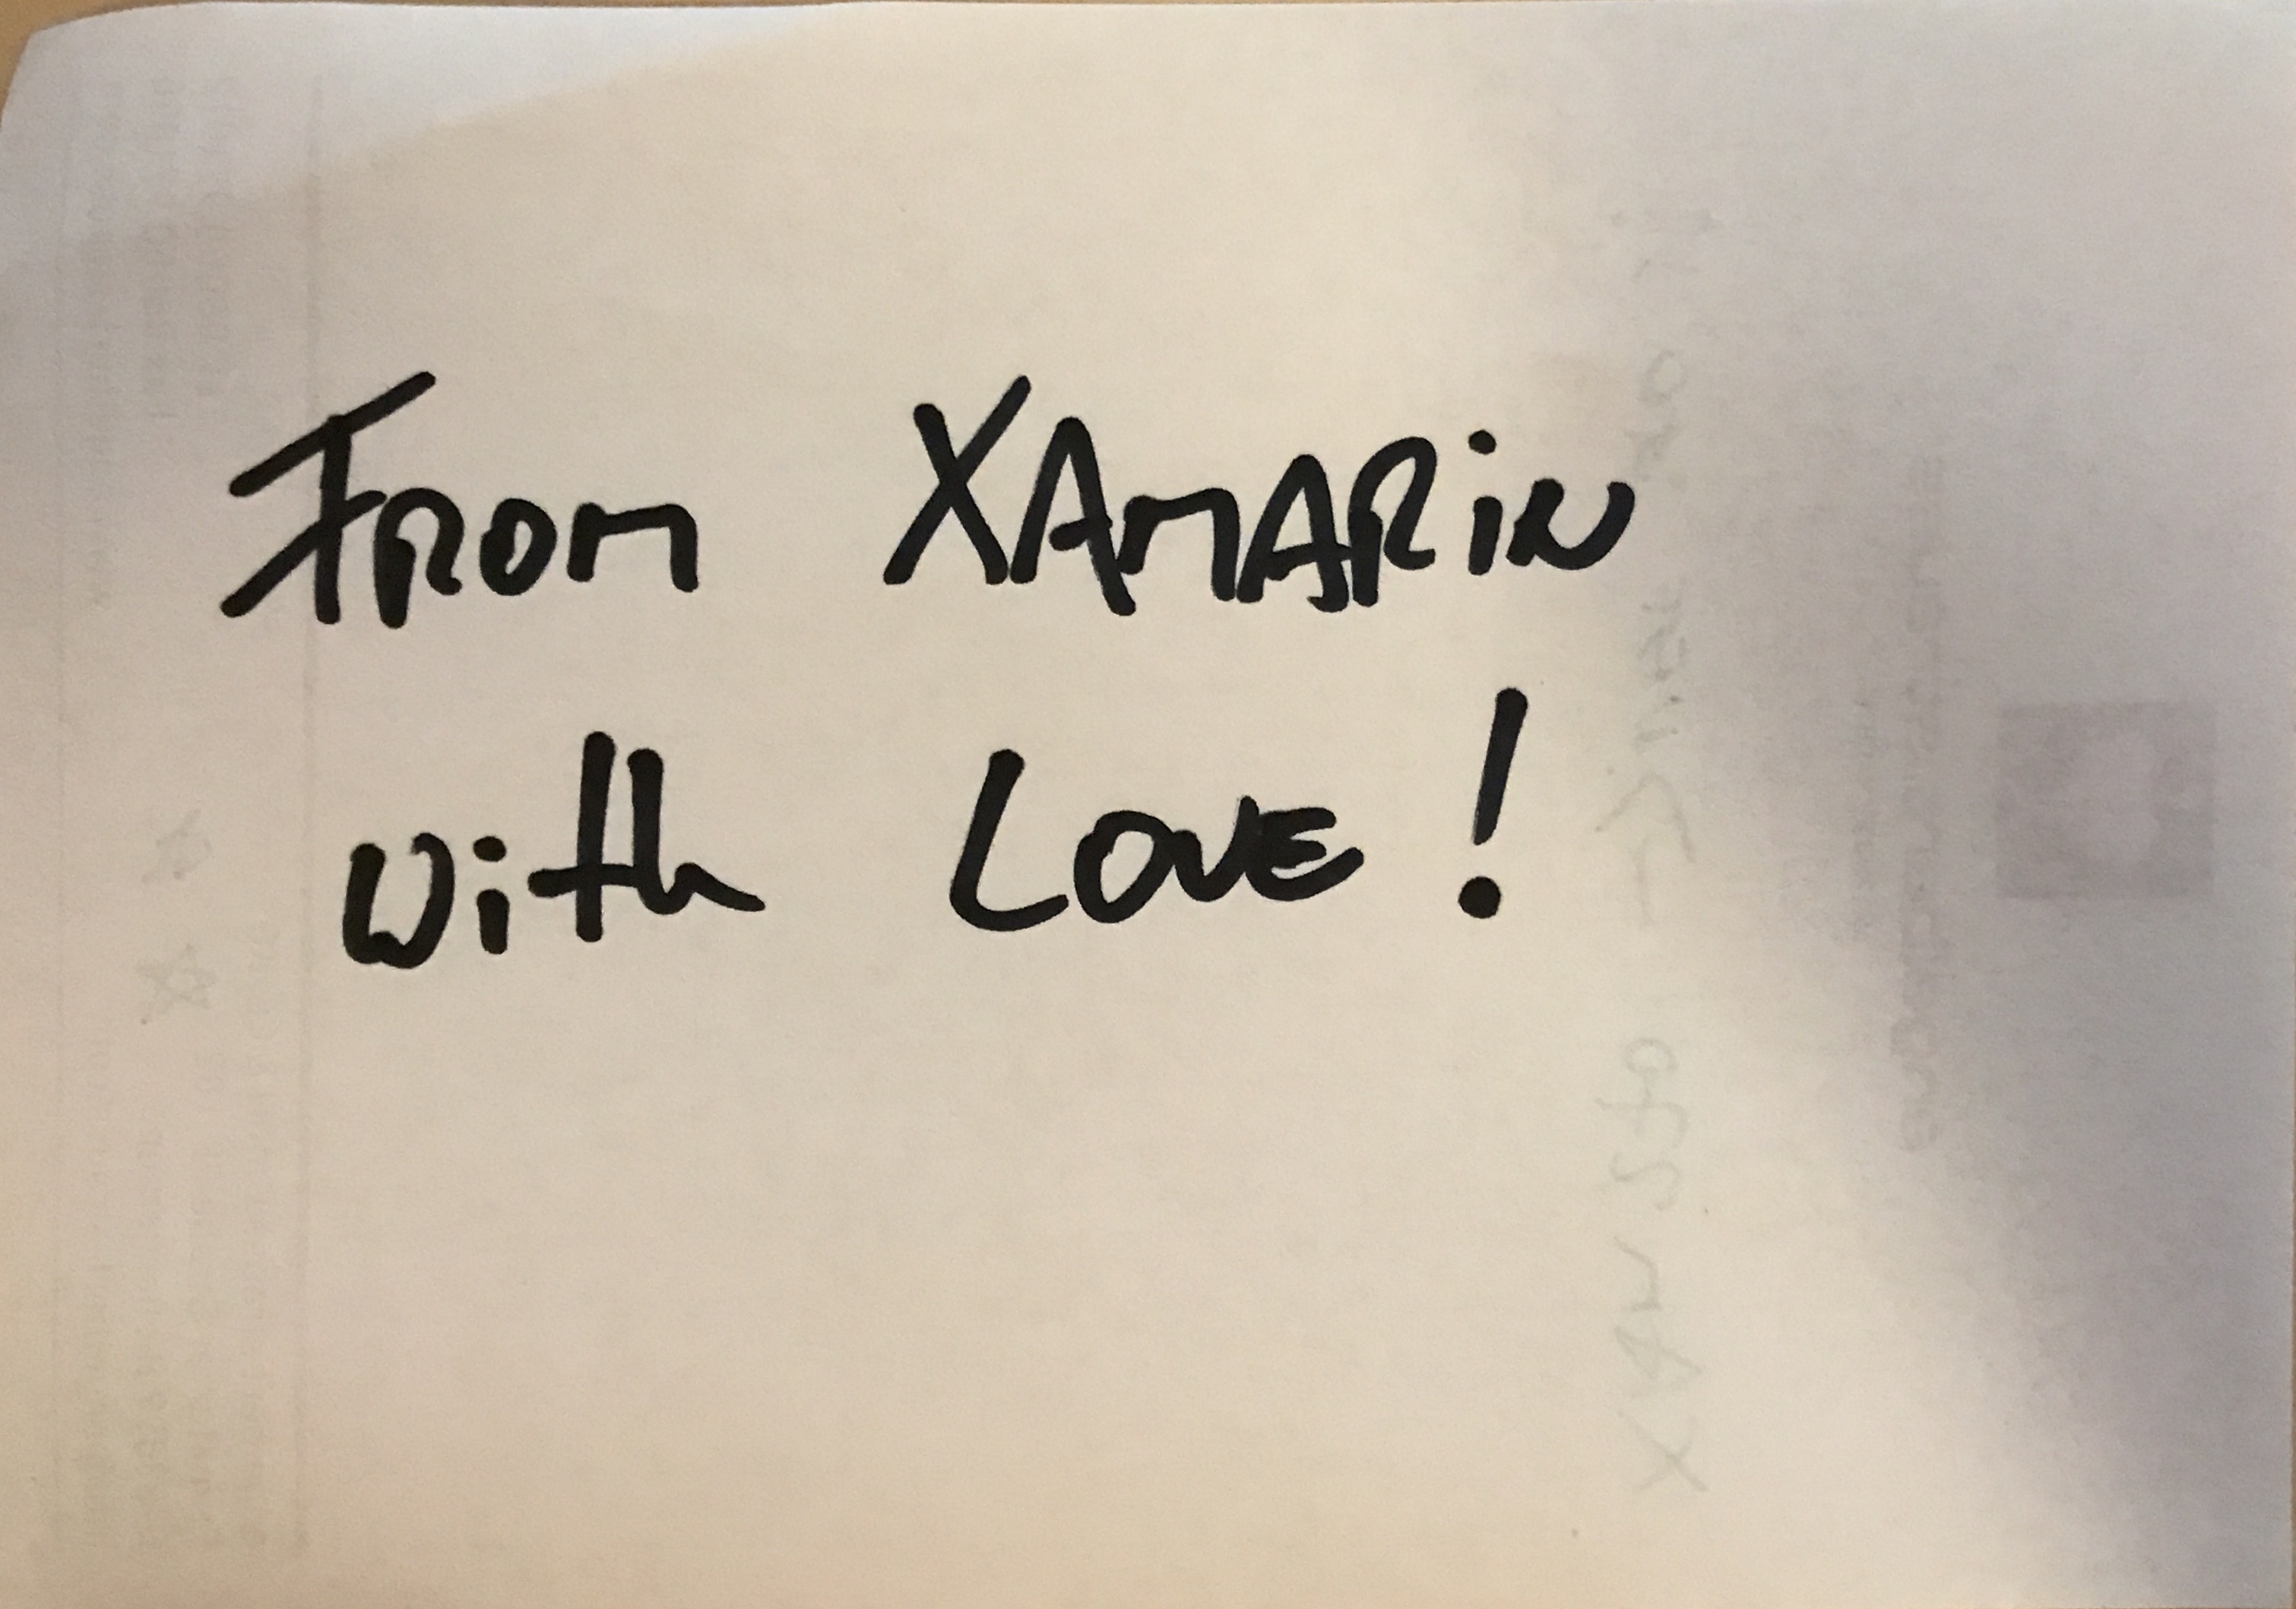 FROM XAMARiN
with LOVE !